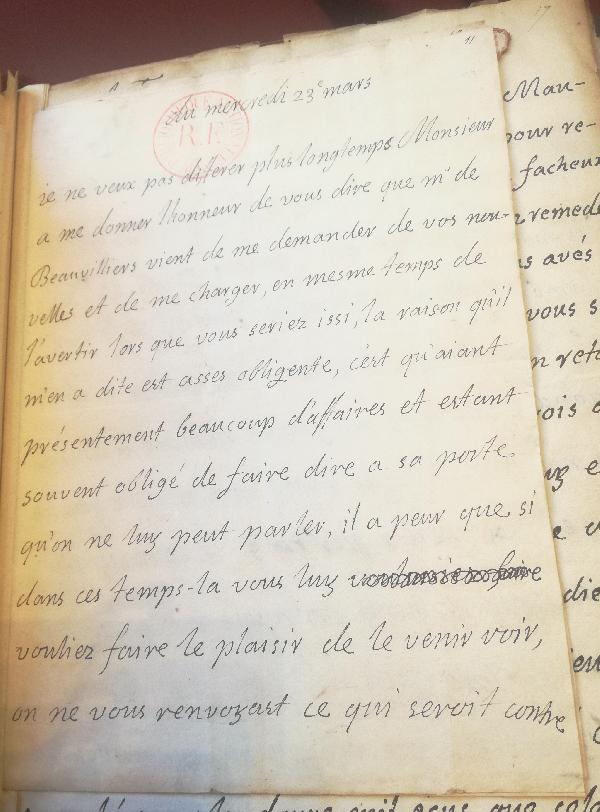 11
17
du mercredi 23e mars
R.F
ie ne veux pas differer plus longtemps Monsieur
a me donner lhonneur de vous dire que mr de
Beauvilliers vient de me demander de vos nou-
velles et de me charger, en mesme temps de
l'avertir lors que vous seriez issi, la raison qu'il
m'en a dite est asses obligente, c'est qu'aiant
présentement beaucoup d'affaires et estant
souvent obligé de faire dire a sa porte
qu'on ne luy peut parler, il a peur que si
dans ces temps-la vous luy
vouliez faire le plaisir de le venir voir,
on ne vous renvoyast ce qui seroit contre
Mau-
pour re-
facheux
remede
avés
vous s